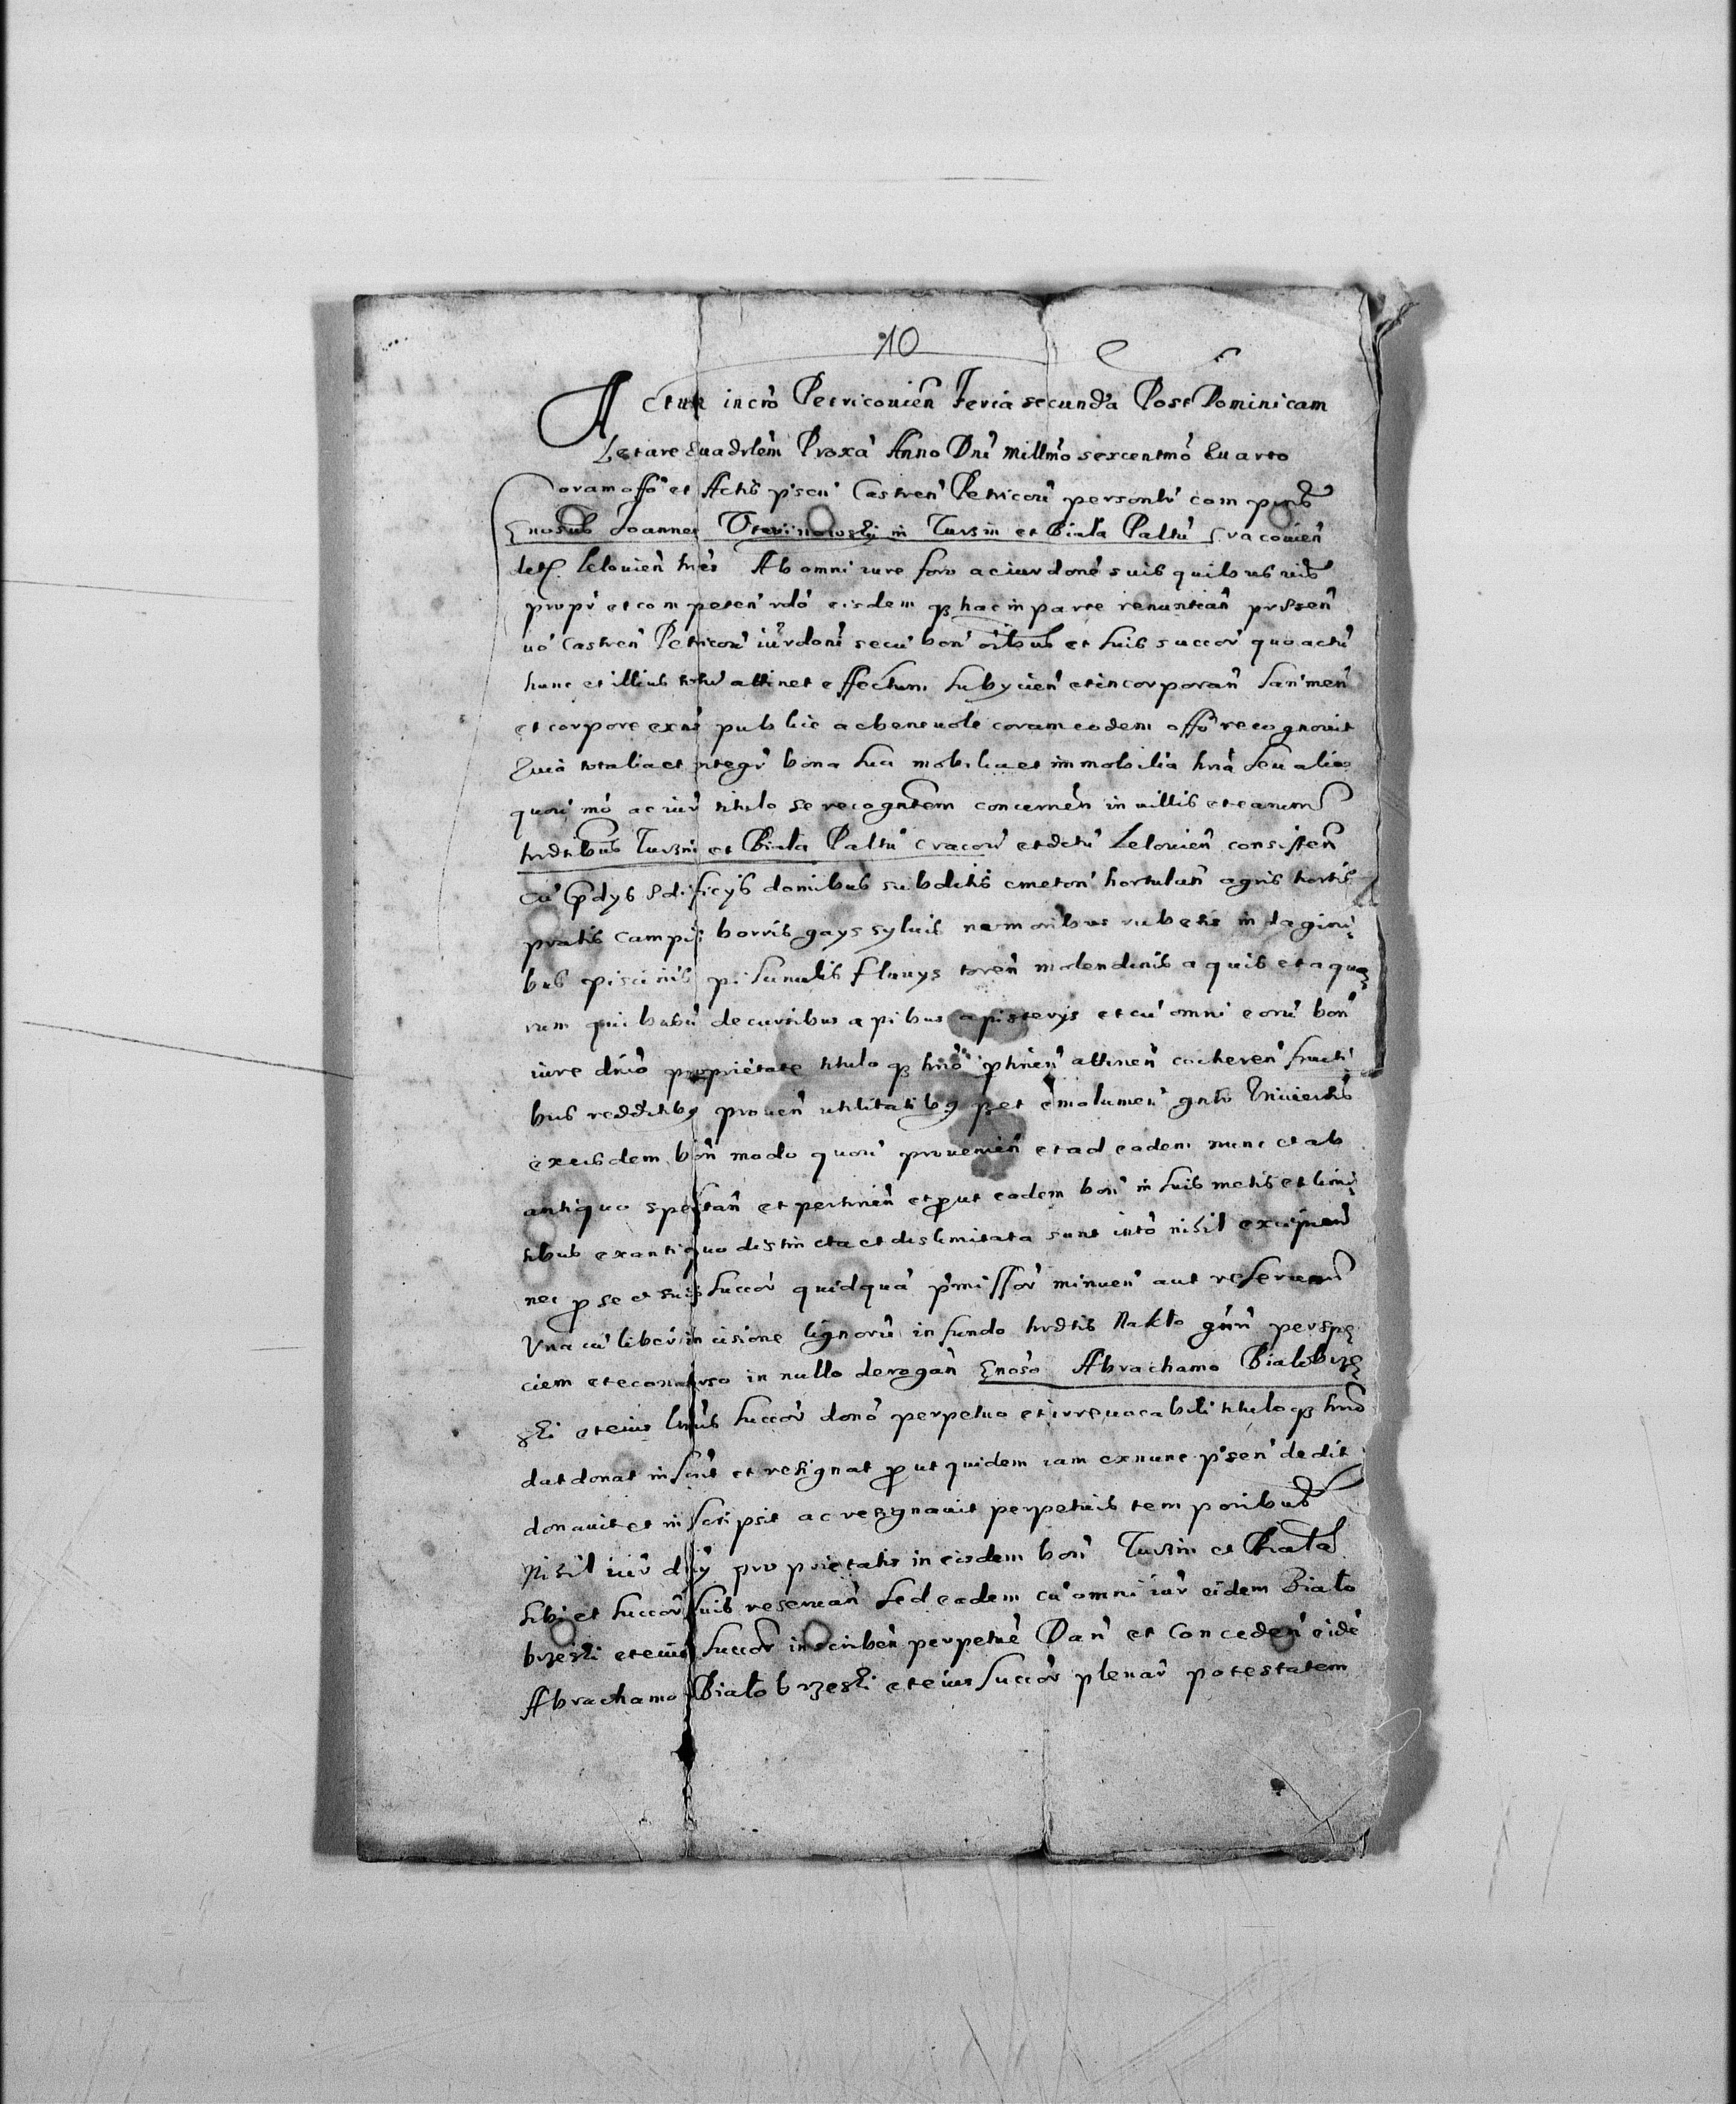 10
Actum in cro Petricouien feria secunda Post Dominicam
Letare Quadrlem Proxa Anno Dni Millmo sexcentmo Quarto
Coram offo et Actis psen Castren Petricou personlr comparens
Gnosus Joannes in Turzin et Biala Palttu Cracouien
Lelouien hres Ab omni iure foro ac iurdone suis quibusuis
propr et competen rdo eisdem q3 hac in parte renuntian prssen
uo Castren Petricou iurdoni secu bon oibus et suis succor quo actu
hunc et illius attinet effectum subycien et incorporan san men
et corpore exns publice ac beneuole coram eodem offo recognouit
Quia totalia et integr bona sua mobilia et immobilia hria seu alio
quoui mo ac iur titulo se recognitem concernen in uillis et earum
hrdtibus Turzin et Biala Palttu Cracou et dctu Lelouien consisten
Cu Prdys ędificys domibus subditis cmeton hortulan agris hortis
pratis campis borris gays syluis nemoribus rubetis indagini
bus piscinis piscinulis fluuys toren molendinis aquis et aqua
rum quibusu decursibus apibus apisterys et cu omni eoru bon
iure dnio proprietate titulo q3 hrio ptinen attinen coheren fructi
bus redditibq prouen utilitatibq q3 et emolumen gnlr Vniuersis
ex eisdem bon modo quoui prouenien et ad eadem nunc et ab
antiquo spectan et pertinen et prout eadem bon in suis metis et limi
tibus ex antiquo distincta et dislimitata sunt into nihil excipien
nec p se et suis succor quidqua pmissor minuen aut reseruan
Vna cu liber incisione lignoru in fundo hrdtis Naklo perspe
ciem et econuerso in nullo derogan Gnoso Abrachamo Bialobrze
ski et eius succor dono perpetuo et irreuocabili titulo q3 hrio
dat donat inscrit et resignat prout quidem iam ex nunc psen dedit
donauit et inscripsit ac resignauit perpetuis temporibus
Nihil iur dny proprietatis in eisdem bon Turzin et Biala
sibi et succor suis reseruan sed eadem cu omni iur eidem Bialo
brzeski et eius succor inscriben perpetue Dan et Conceden eide
Abrachamo Bialobrzeski et eius succor plenar potestatem